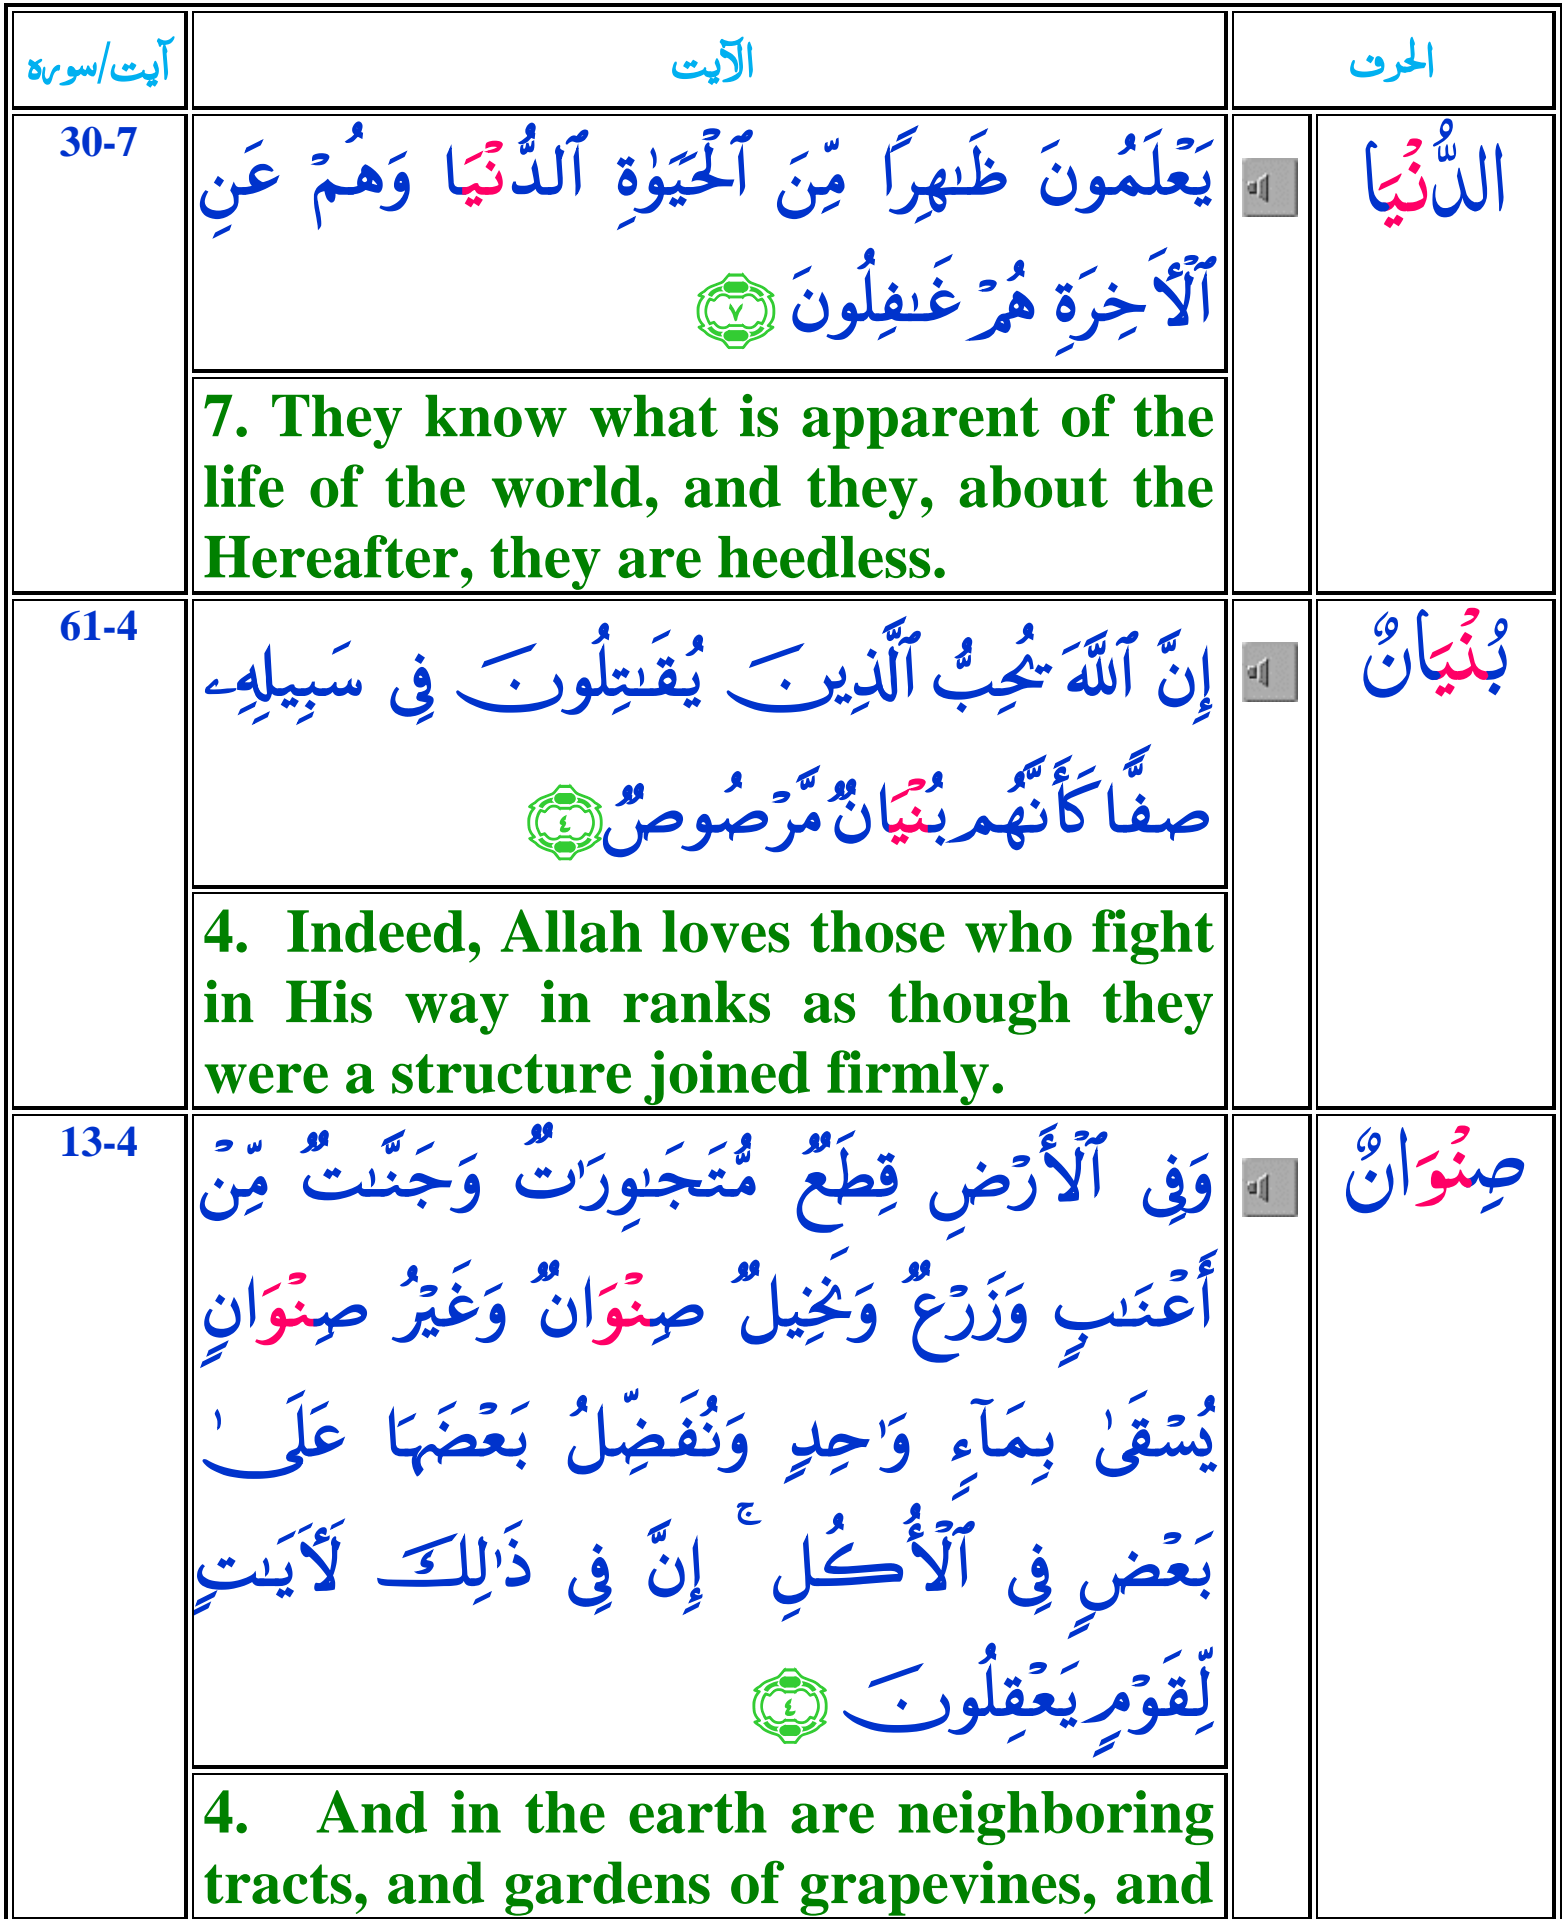 الحرف
الآيت
آيت/سوره
الدُّنْيَا
يَعْلَمُونَ ظَـٰهِرًا مِّنَ ٱلْحَيَوٰةِ ٱلدُّنْيَا وَهُمْ عَنِ
ٱلْأَخِرَةِ هُمْ غَـٰفِلُونَ ٧
30-7
7. They know what is apparent of the
life of the world, and they, about the
Hereafter, they are heedless.
بُنْيَانٌ
إِنَّ ٱللَّهَ يُحِبُّ ٱلَّذِينَ يُقَـٰتِلُونَ فِى سَبِيلِهِۦ
صفًّا كَأَنَّهُم بُنْيَانٌ مَّرْصُوصٌ ٤
61-4
4. Indeed, Allah loves those who fight
in His way in ranks as though they
were a structure joined firmly.
صِنْوَانٌ
وَفِى ٱلْأَرْضِ قِطَعٌ مُّتَجَـٰوِرَٰتٌ وَجَنَّـٰتٌ مِّنْ
أَعْنَـٰبٍ وَزَرْعٌ وَنَخِيلٌ صِنْوَانٌ وَغَيْرُ صِنْوَانٍ
يُسْقَىٰ بِمَآءٍ وَٰحِدٍ وَنُفَضِّلُ بَعْضَهَا عَلَىٰ
بَعْضٍ فِى ٱلْأُكُلِ ۚ إِنَّ فِى ذَٰلِكَ لَأَيَـٰتٍ
لِّقَوْمٍ يَعْقِلُونَ ٤
13-4
4. And in the earth are neighboring
tracts, and gardens of grapevines, and